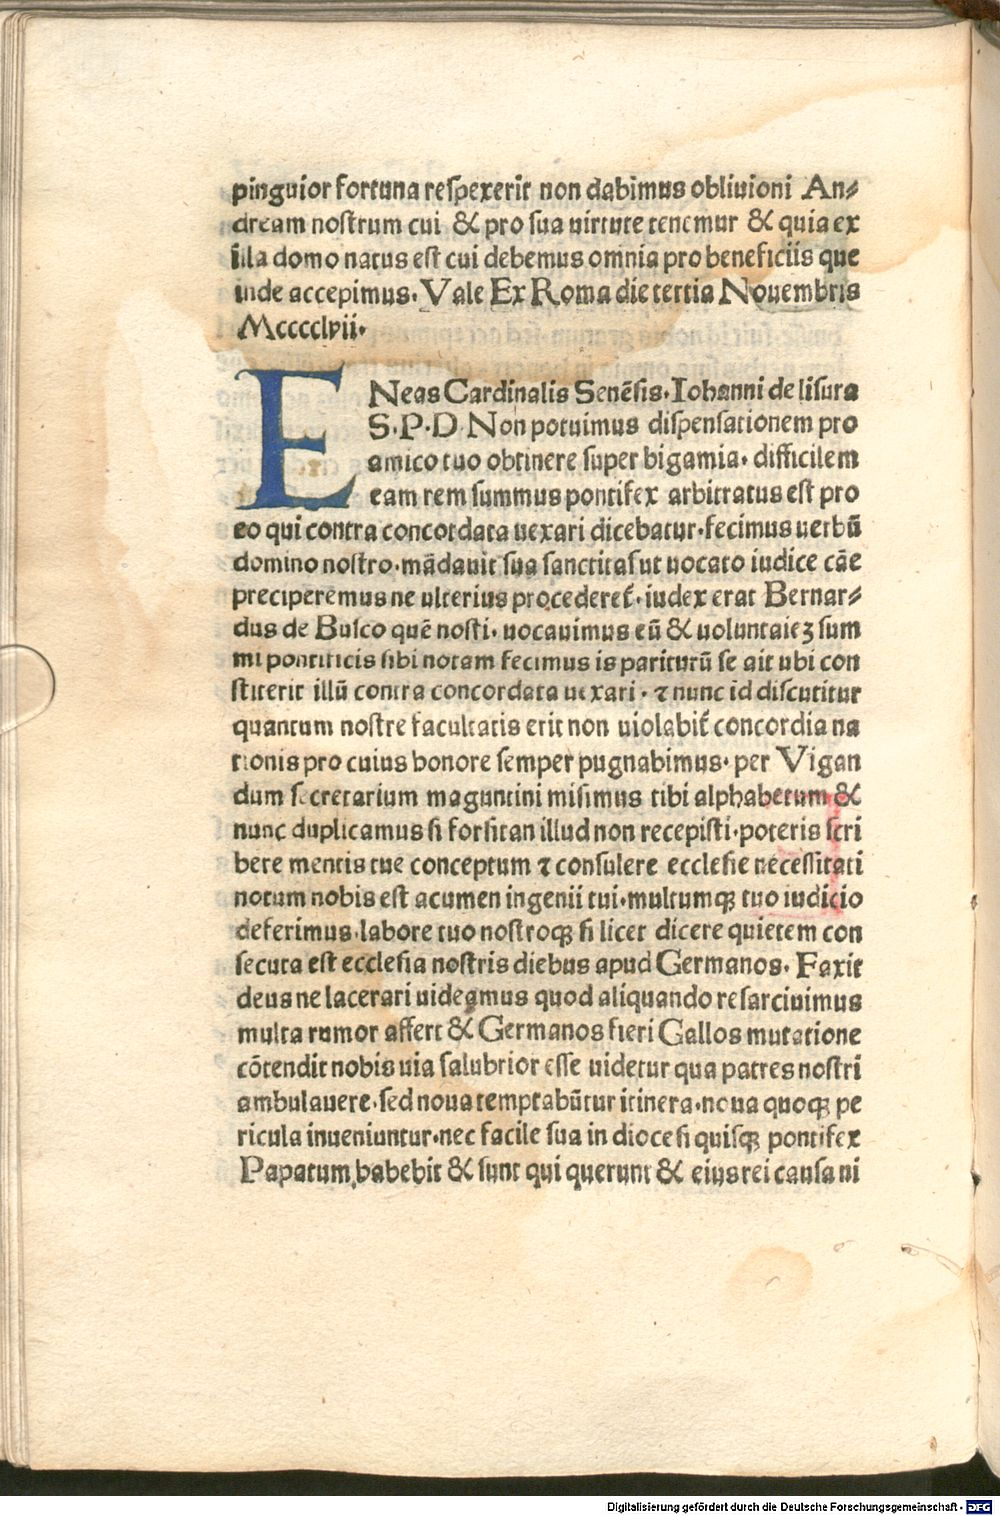 pinguior fortuna respexerit non dabimus obliuioni An⸗
dream nostrum cui & pro sua uirtute tenemur & quia ex
illa domo natus est cui debemus omnia pro beneficiis que
inde accepimus. Vale Ex Roma die tertia Nouembris
Mcccclvii.
ENeas Cardinalis Senēsis. Iohanni de lisura
S.P.D. Non potuimus dispensationem pro
amico tuo obtinere super bigamia. difficilem
eam rem summus pontifex arbitratus est pro
eo qui contra concordata uexari dicebatur. fecimus uerbū
domino nostro. mādauit sua sanctitas ut uocato iudice cāe
preciperemus ne ulterius procederet᷑. iudex erat Bernar⸗
dus de Busco quē nosti. uocauimus eū & uoluntateꝫ sum
mi pontificis sibi notam fecimus is pariturū se ait ubi con
stiterit illū contra concordata uexari. ⁊ nunc id discutitur
quantum nostre facultatis erit non uiolabit᷑ concordia na
tionis pro cuius honore semper pugnabimus. per Vigan
dum secretarium maguntini misimus tibi alphabetum &
nunc duplicamus si forsitan illud non recepisti. poteris scri
bere mentis tue conceptum ⁊ consulere ecclesie necessitati
notum nobis est acumen ingenii tui. multumqꝫ tuo iudicio
deferimus. labore tuo nostroqꝫ si licet dicere quietem con
secuta est ecclesia nostris diebus apud Germanos. Faxit
deus ne lacerari uideamus quod aliquando resarciuimus
multa rumor affert & Germanos fieri Gallos mutatione
cōtendit nobis uia salubrior esse uidetur qua patres nostri
ambulauere. sed noua temptabūtur itinera. noua quoqꝫ pe
ricula inueniuntur. nec facile sua in diocesi quisqꝫ pontifex
Papatum habebit & sunt qui querunt & eius rei causa ni
Digitalisierung gefördert durch die Deutsche Forschungsgemeinschaft - DFG